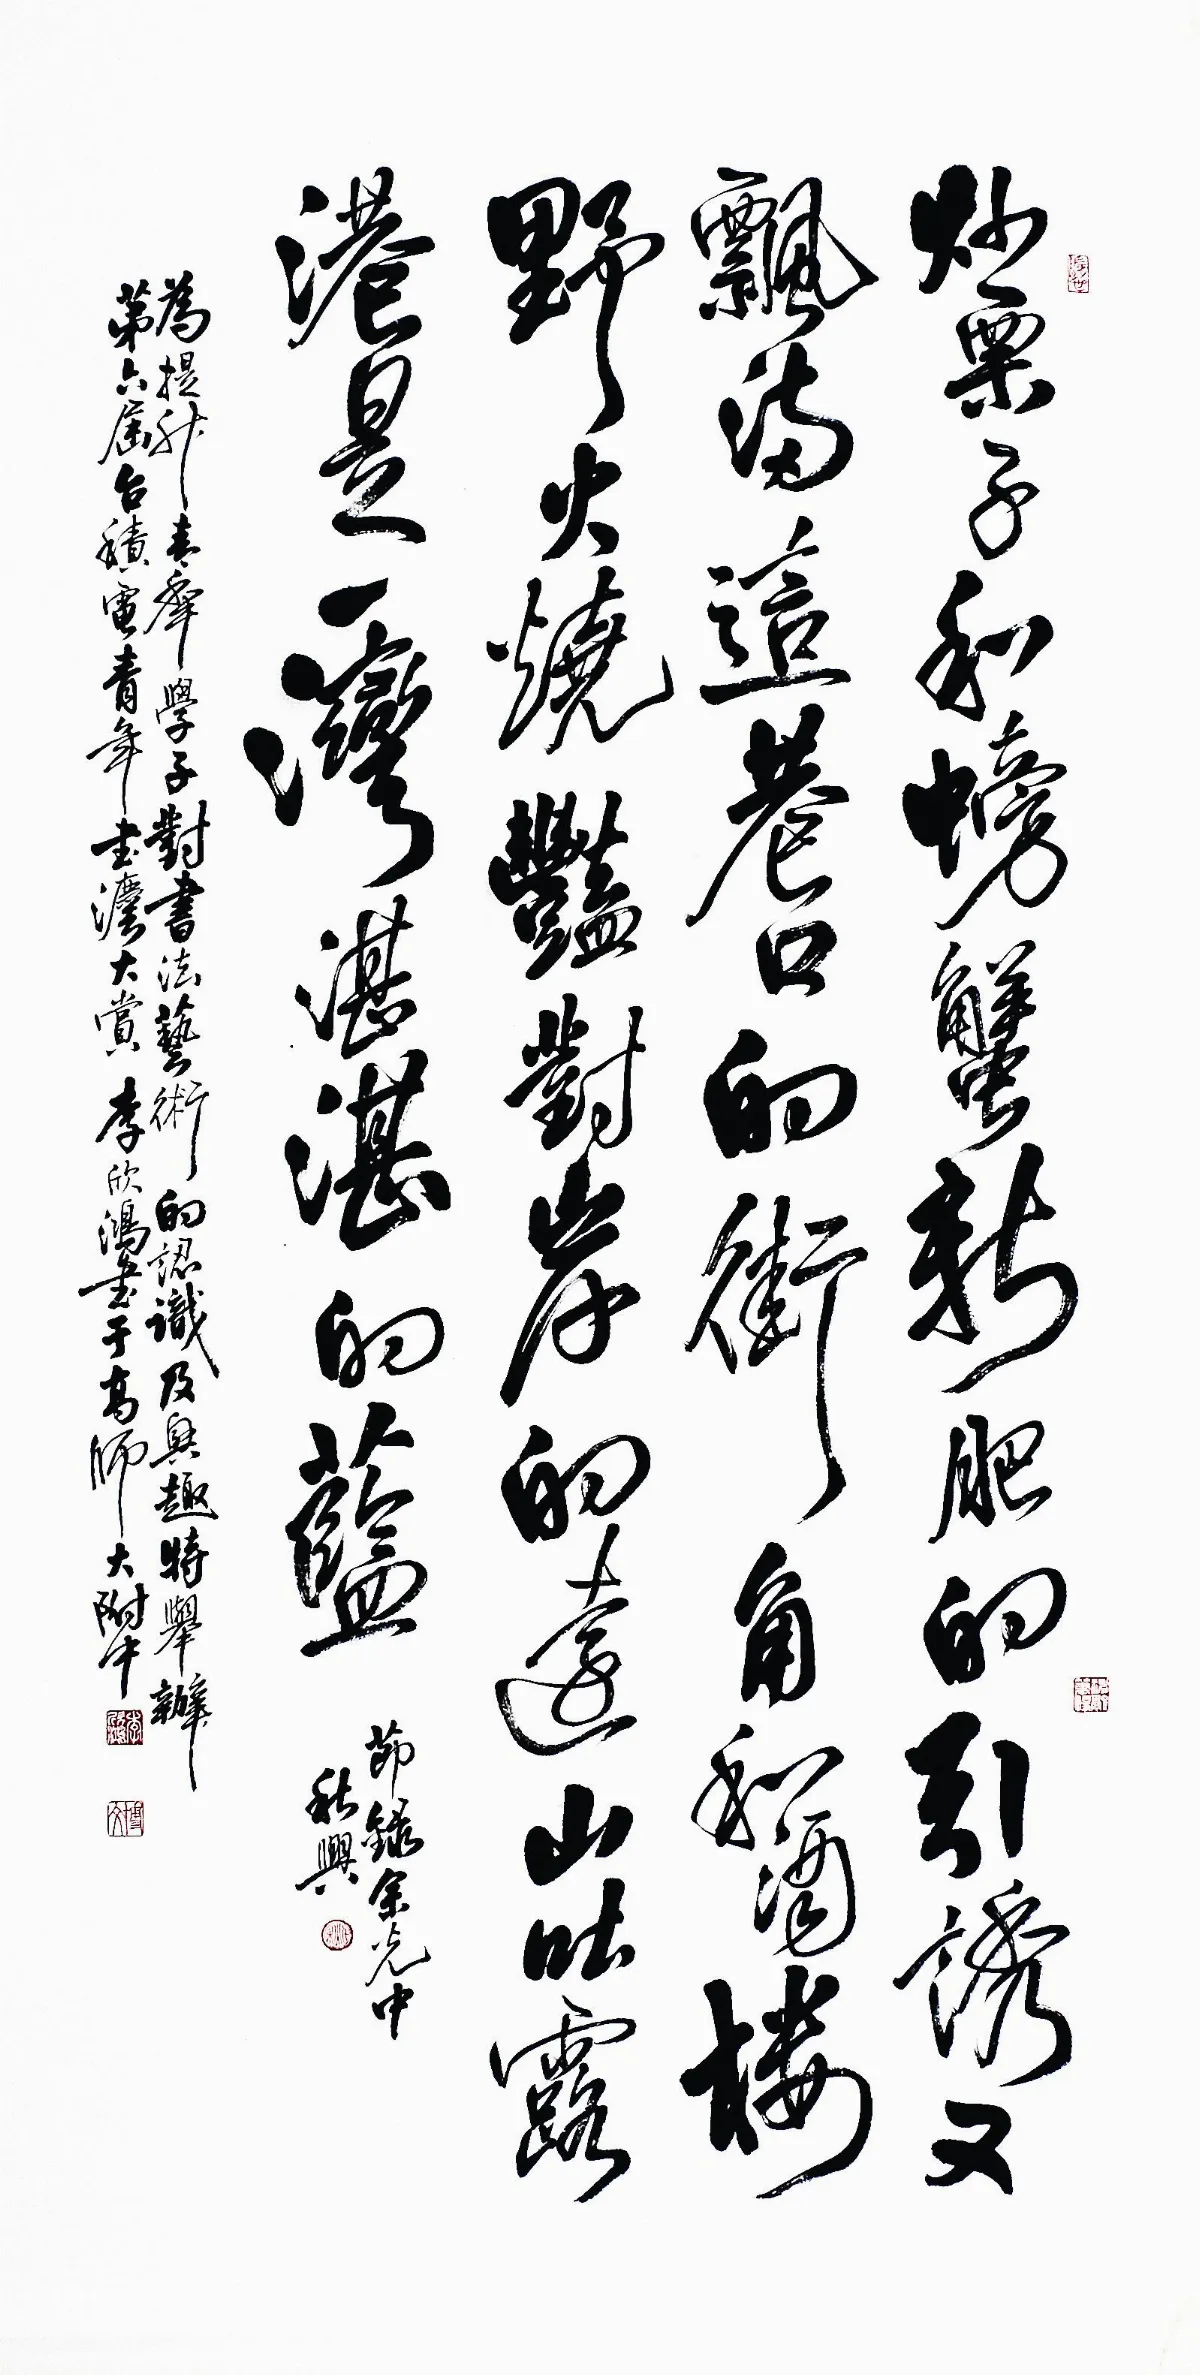 炒栗子和螃蟹新肥的引誘又
飄滿這巷口的街角和酒樓
野火燒豔對岸的遠山吐露
港是一灣湛湛的藍
節錄余光中
秋興
為提升青年學子對書法藝術的認識及興趣特舉辦
第六屆台積電青年書灋大賞李欣鴻書于高師大附中